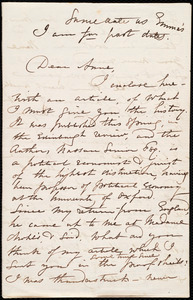 Same date as Emma's
I am for past dates.
Dear Anne,
I enclose here-
with an article, of which
I must give you the history
It was published this in
the Edinburgh Review, and the
Author, Nassau Senior Esq. is
a political economist & jurist
of the highest distinction, having
been professor of Political Economy
at the University of Oxford
Since my return from England
he came up to me at Madame
Mohl's & said, What did you
think of my article which I
sent you in the proof sheets?
I was thunderstruck - never